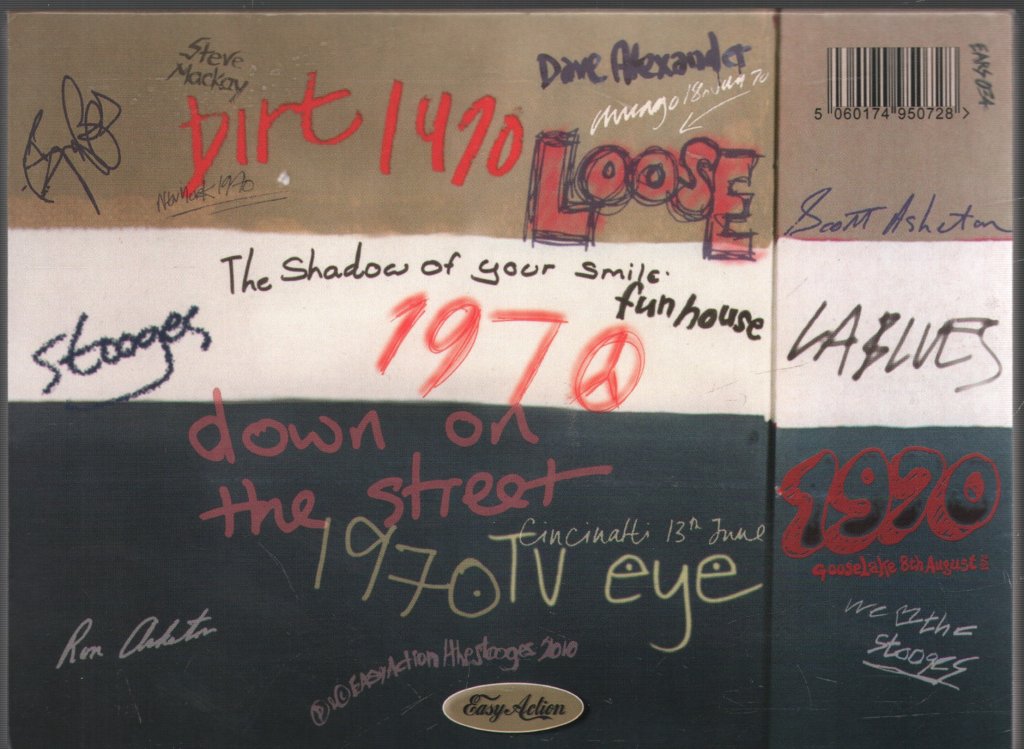 Steve
Mackay
Dirt 1970
New York 1970
Dave Alexander
Ungano 18th Aug 70
LOOSE
5 060174 950728 >
EARS 024
Scott Asheton
The Shadow of your smile.
funhouse
1970
Stooges
LA BLUES
down on
the street
1970
Cincinatti 13th June
TV eye
1970
Goose Lake 8th August
We the
Stooges
Ron Asheton
Ⓟ & © EASY Action / the stooges 2010
Easy Action